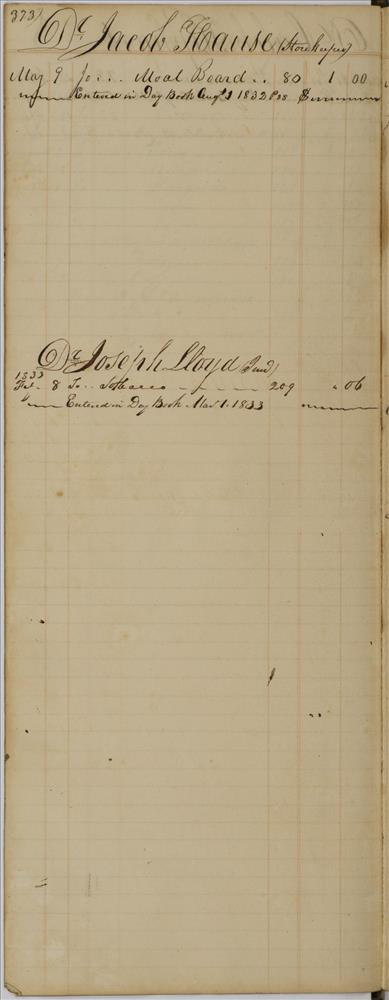 373
Dr Jacob Hause (Storekeeper)
May 9 To... Moal Board.. 80 1 00
Entered in Day Book Augt 1 1832 P 88 $
Dr Joseph Lloyd (Jun)
1833
Feb. 8 To.. Tobacco - - - - 209 " 06
Entered in Day Book Mar 1. 1833